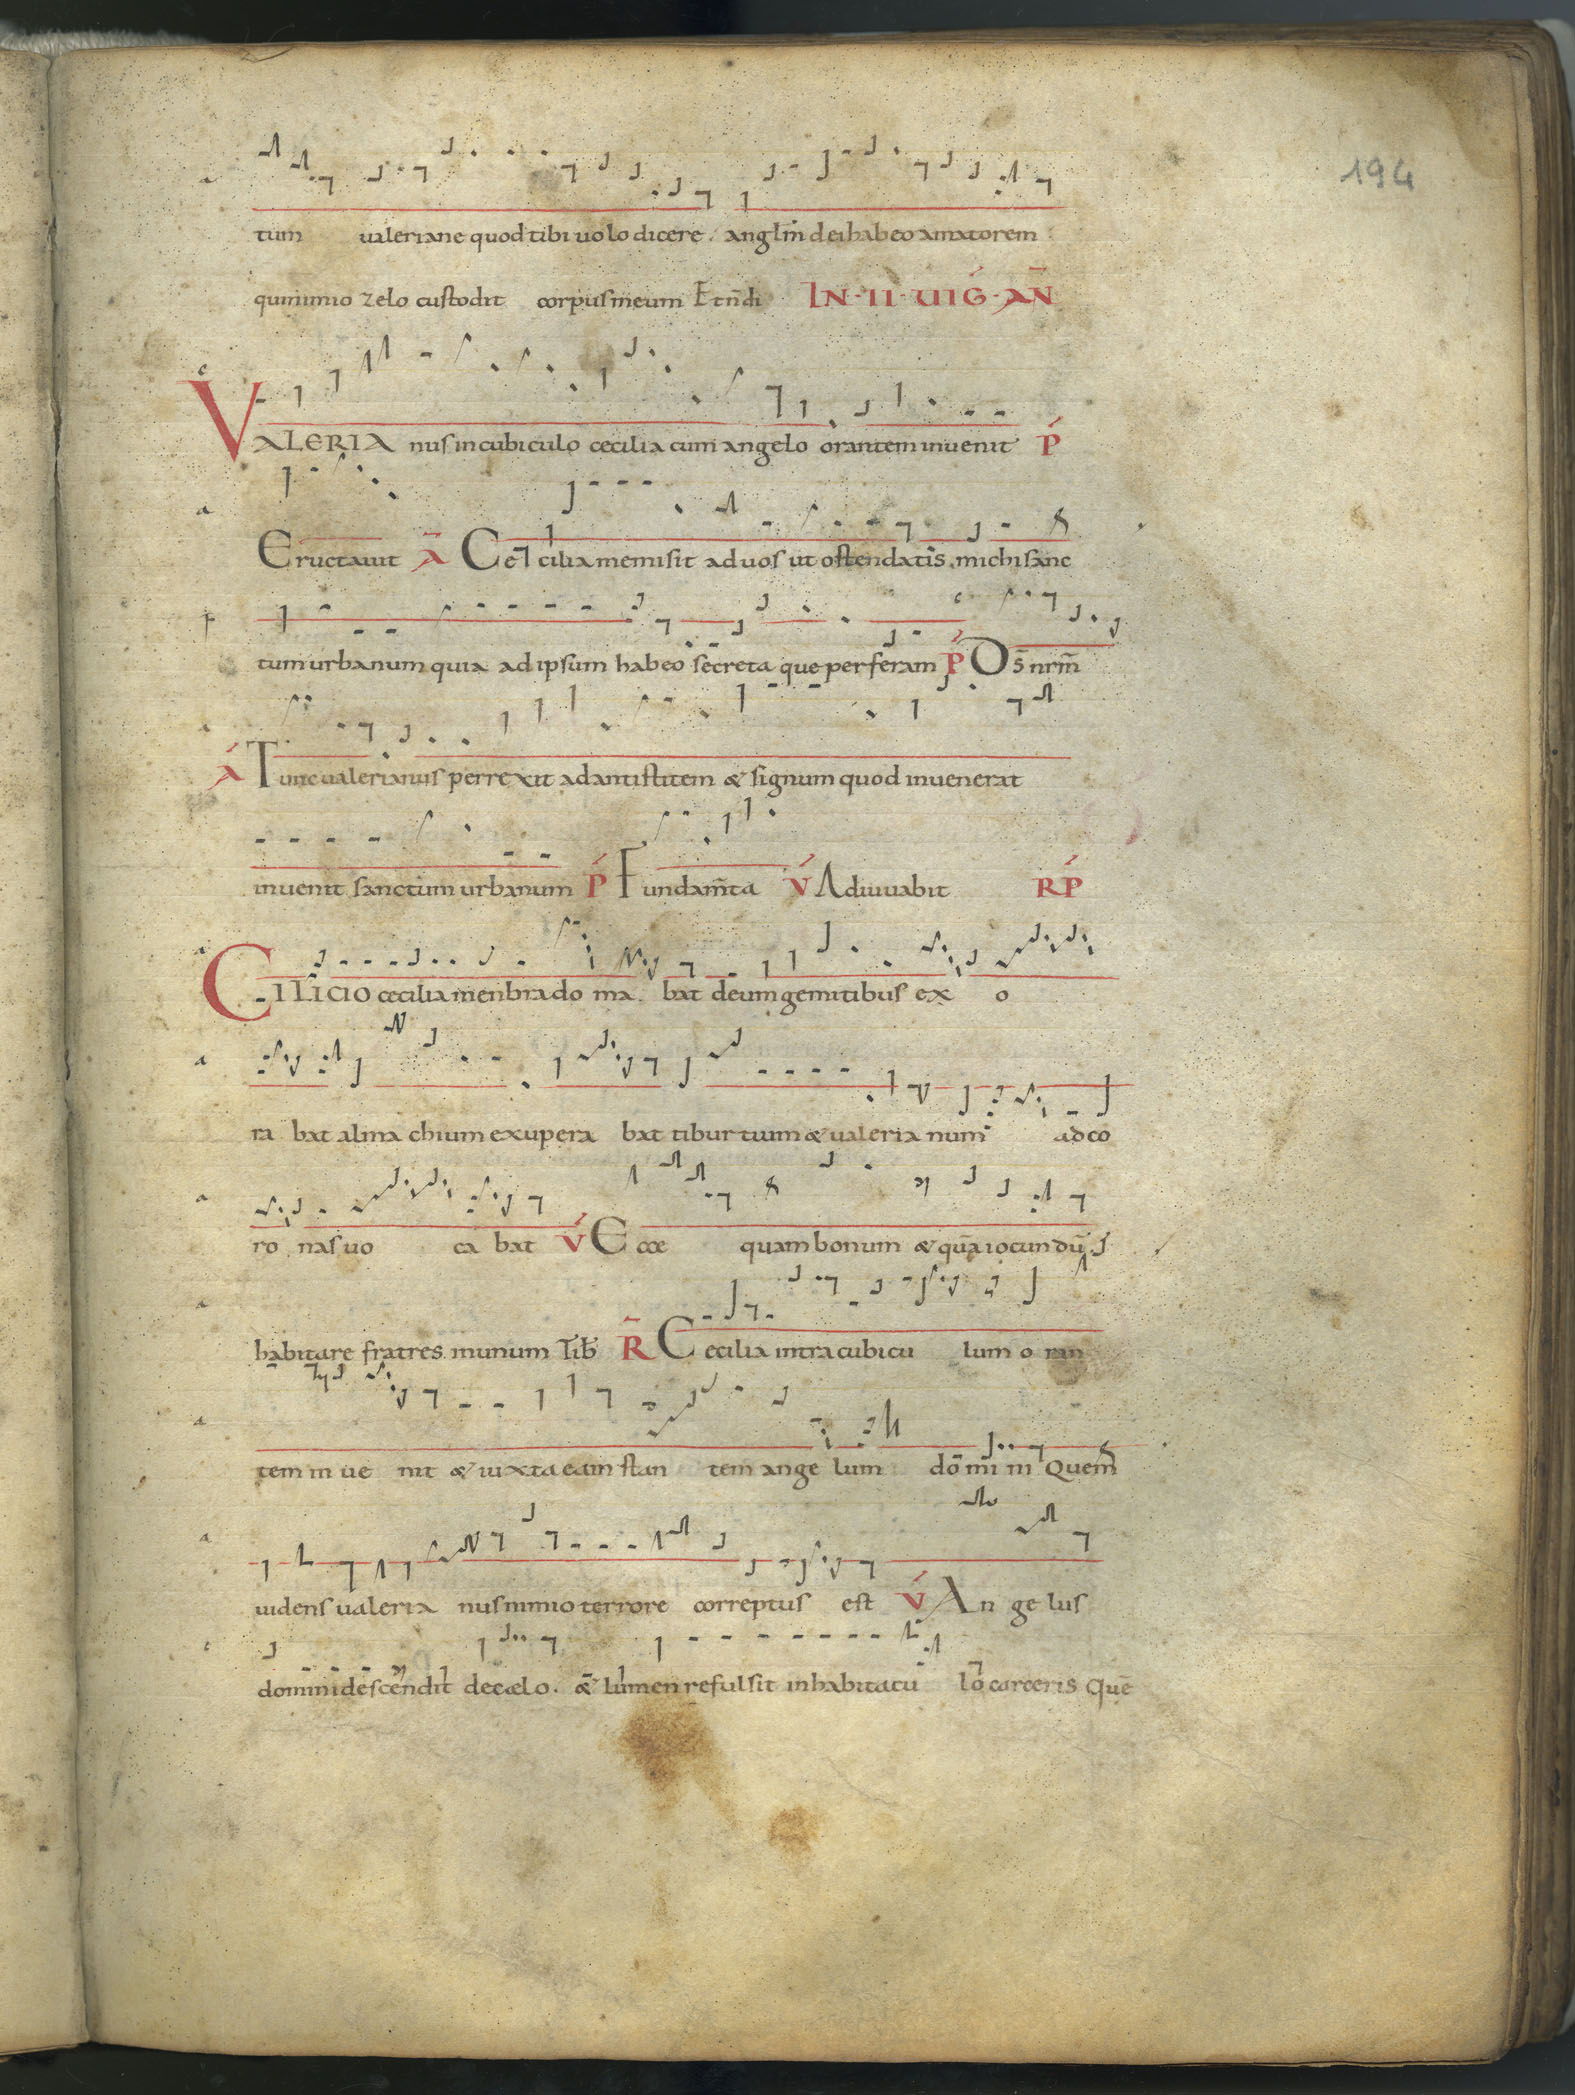 194
tum valeriane quod tibi uolo dicere. anglm̄ dei habeo amatorem
qui nimio zelo custodit corpus meum Et n̄ di IN · II · UIG · AÑ
VALERIA nus in cubiculo cecilia cum angelo orantem inuenit P
Eructauit Ā Ce cilia me misit ad uos ut ostendatis michi sanc
tum urbanum quia ad ipsum habeo secreta que perferam P D s̄ nr̄m
A Tunc ualerianus perrexit ad antistitem & signum quod inuenerat
inuenit sanctum urbanum P Fundam̄ta V Adiuuabit RP
CILICIO cecilia menbra do ma bat deum gemitibus ex o
ra bat almachium exupera bat tiburtium & ualeria num ad co
ro nas uo ca bat V E cce quam bonum & quā iocundū
habitare fratres in unum Lib̄ R Cecilia intra cubicu lum o ran
tem in ue nit & iuxta eam stan tem ange lum domi ni Quem
uidens ualeria nus nimio terrore correptus est V An ge lus
domini descendit de cælo. & lumen refulsit in habitacu lo carceris Quē